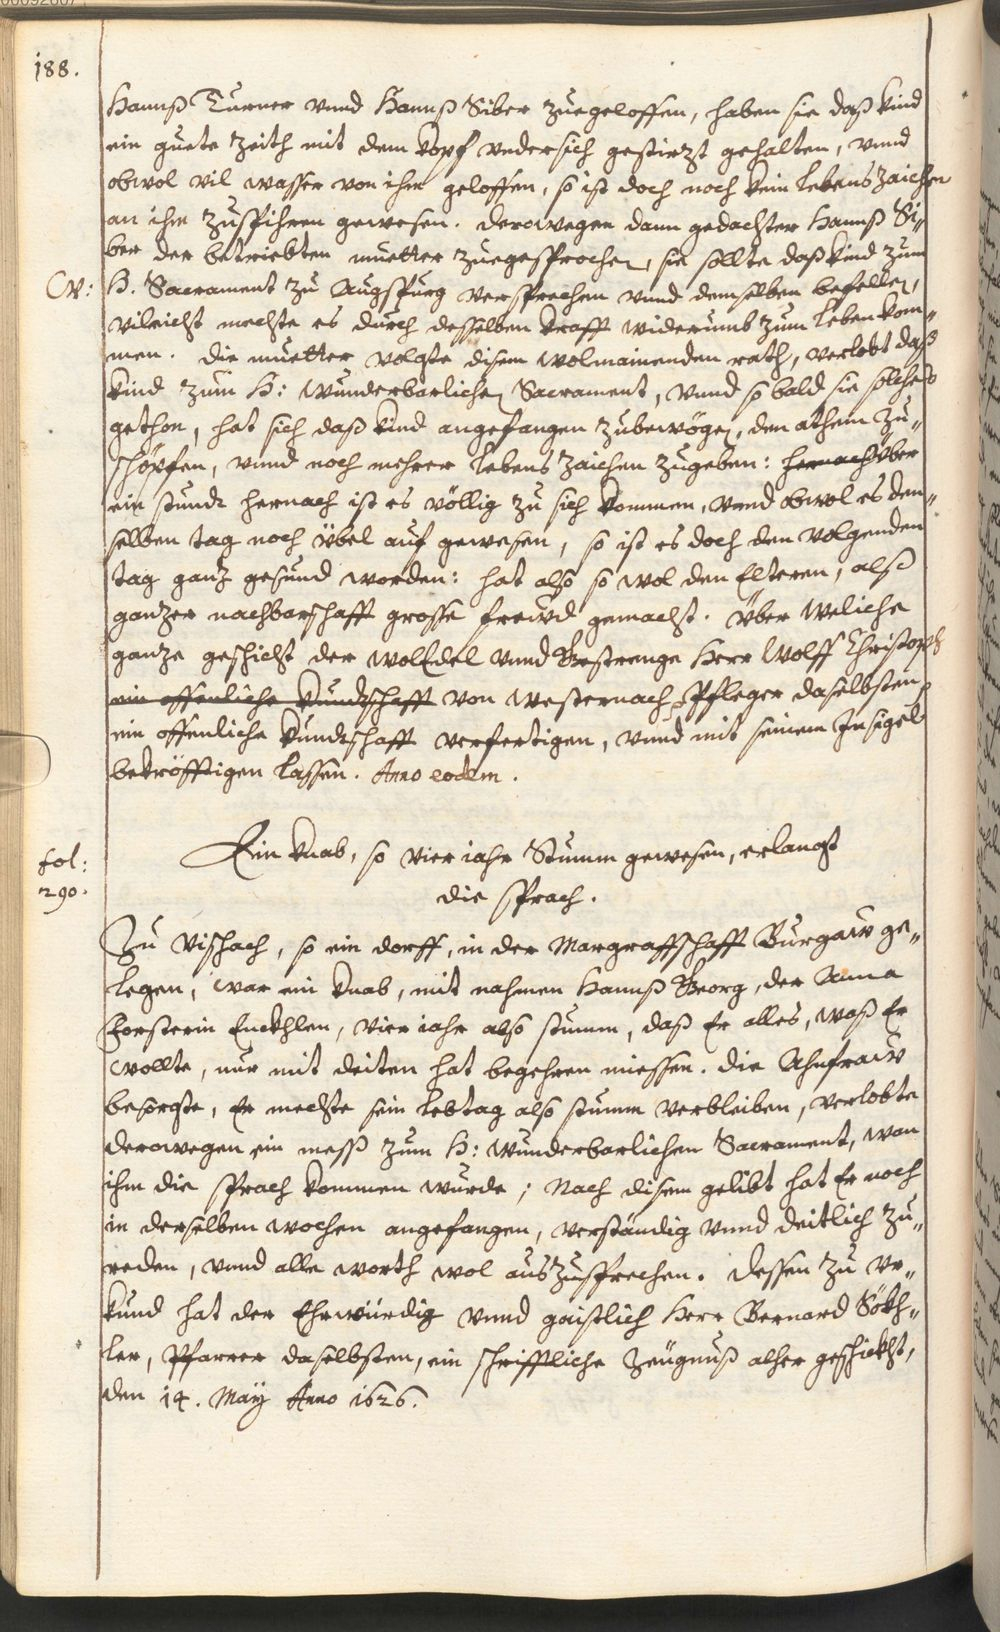 188.
Hannß Turner vnnd Hannß Siber zuegeloffen, haben sie daß kind
ein guete zeith mit dem kopf vndersich gestirzt gehalten, vnnd
obwol vil wasser von ihm geloffen, so ist doch noch kein lebens zaichen
an ihm zuspihren gewesen. derowegen dann gedachter Hannß Si„
ber der betriebten muetter zuegesprochen, sie sollte daß kind zum
H. Sacrament zu Augspurg versprechen vnnd demselben befellen,
vileicht mechte es durch desselben krafft widerumb zum leben kom„
men. die muetter volgte disem wolmainenden rath, verlobt daß
kind zum H: wunderbarlichen Sacrament, vnnd so bald sie solches
gethon, hat sich daß kind angefangen zubewögen, den athem zu„
schöpfen, vnnd noch mehrer lebens zaichen zugeben: hernach über
ein stundt hernach ist es völlig zu sich kommen, vnnd obwol es den„
selben tag noch übel auf gewesen, so ist es doch den volgenden
tag ganz gesund worden: hat also so wol den Elteren, alß
ganzer nachbarschafft grosse freivd gemacht. über weliche
ganze geschicht der wolEdel vnnd Gestrenge Herr Wolff Christoph
ein offenliche kundtschafft von Westernach, Pfleger daselbsten,
ein offenliche kundtschafft verfertigen, vnnd mit seinem Insigel
bekröfftigen lassen. Anno eodem.
fol:
290.
Ein knab, so vier iahr Stumm gewesen, erlangt
die sprach.
Zu Vischach, so ein dorff, in der Margraffschafft Burgaw ge„
legen, war ein knab, mit nahmen Hannß Georg, der Anna
Forsterin Enckhlen, vier iahr also stumm, daß Er alles, waß Er
wollte, nur mit deiten hat begehren miessen. die Ahnfraw
besorgte, Er mechte sein lebtag also stumm verbleiben, verlobte
derowegen ein mess zum H: wunderbarlichen Sacrament, wan
ihm die sprach kommen wurde; Nach disem gelibt hat Er noch
in derselben wochen angefangen, verständig vnnd deitlich zu„
reden, vnnd alle worth wol auszusprechen. dessen zu vr„
kund hat der Ehrwürdig vnnd gaistlich Herr Bernard Sökh„
ler, Pfarrer daselbsten, ein schrifftliche zeügnuß alher geschickht,
den 14. Maÿ Anno 1626.